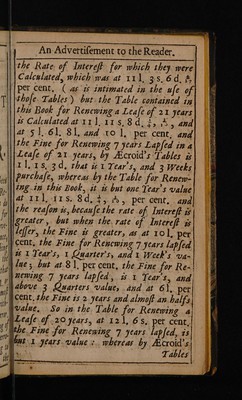 An Advertisement to the Reader.
the Rate of Interest for which they were
Calculated, which was at 11 l. 3 s. 6 d.
per cent. (as is intimated in the use of
those Tables) but the Table contained in
this Book for Renewing a Lease of 21 years
is Calculated at 11 l. 11 s. 8 d.
at 5 l. 6 l. 8 l. and 10 l. per cent. and
the Fine for Renewing 7 years Lapsed in a
Lease of 21 years, by Æcroid's Tables is
1 l. 1 s. 3 d. that is 1 Year's, and 3 Weeks
purchase, whereas by the Table for Renew-
ing in this Book, it is but one Year's value
at 11 l. 11 s. 8 d. per cent. and
the reason is, because the rate of Interest is
greater, but when the rate of Interest is
lesser, the Fine is greater, as at 10 l. per
cent. the Fine for Renewing 7 years lapsed
is 1 Year's, 1 Quarter's, and 1 Week's va-
lue; but at 8 l. per cent. the Fine for Re-
newing 7 years lapsed, is 1 Year's, and
above 3 Quarters value, and at 6 l. per
cent. the Fine is 2 years and almost an halfs
value. So in the Table for Renewing a
Lease of 20 years, at 12 l. 6 s. per cent.
the Fine for Renewing 7 years lapsed, is
but 1 years value: whereas by Æcroid's
Tables